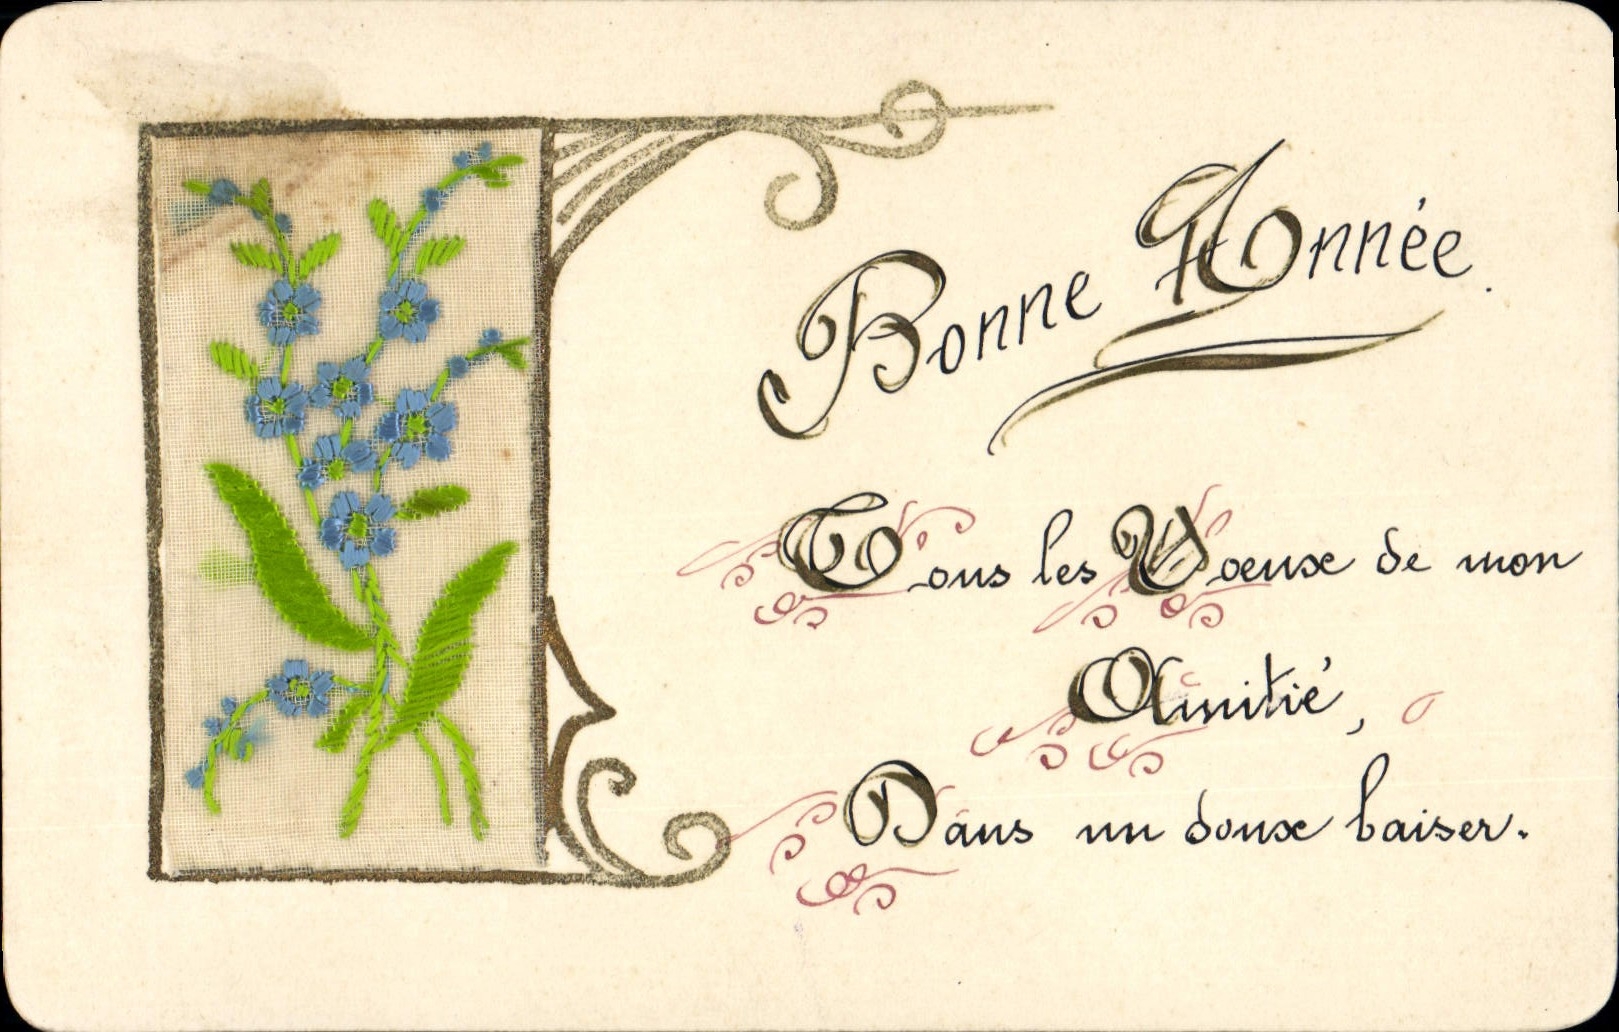 Bonne Année.
Tous les Voeux de mon
Amitié,
Dans un doux baiser.